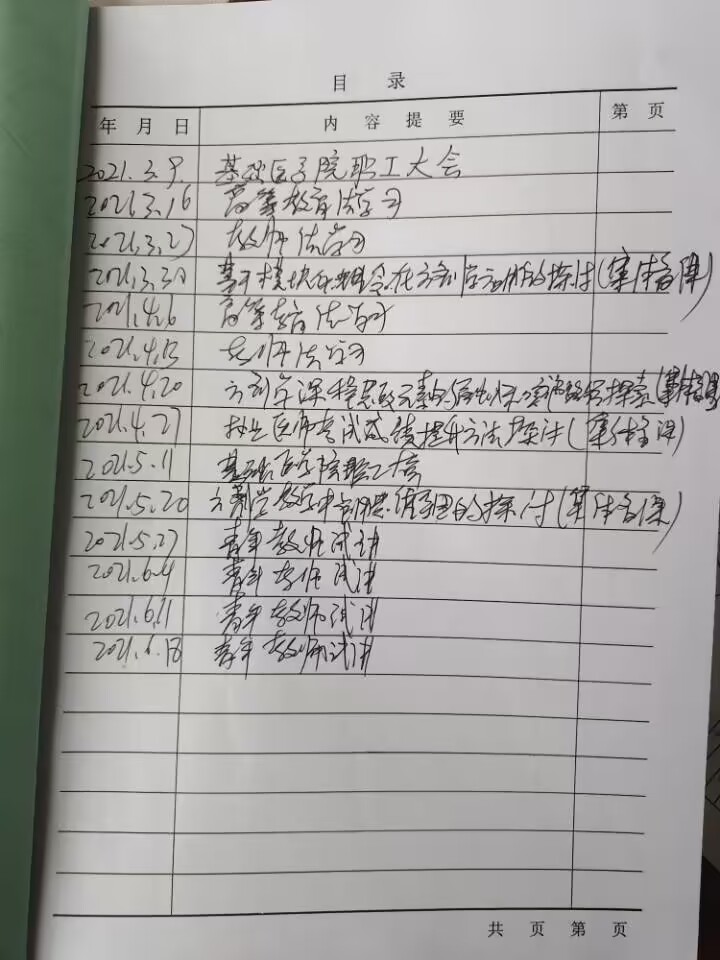 目 录
年 月 日 内 容 提 要 第 页
2021.3.9. 基础医学院职工大会
2021.3.16 高等教育法学习
2021.3.23 教师法学习
2021.3.30 基于模块化理念在方剂学应用的探讨(集体备课)
2021.4.6 高等教育法学习
2021.4.13 教师法学习
2021.4.20 方剂学课程思政元素的 探索(集体备课)
2021.4.27 执业医师考试成绩提升方法探讨(集体备课)
2021.5.11 基础医学院职工大会
2021.5.20 方剂学教学中 的探讨(集体备课)
2021.5.27 青年教师试讲
2021.6.4 青年教师试讲
2021.6.11 青年教师试讲
2021.6.18 青年教师试讲
共 页 第 页